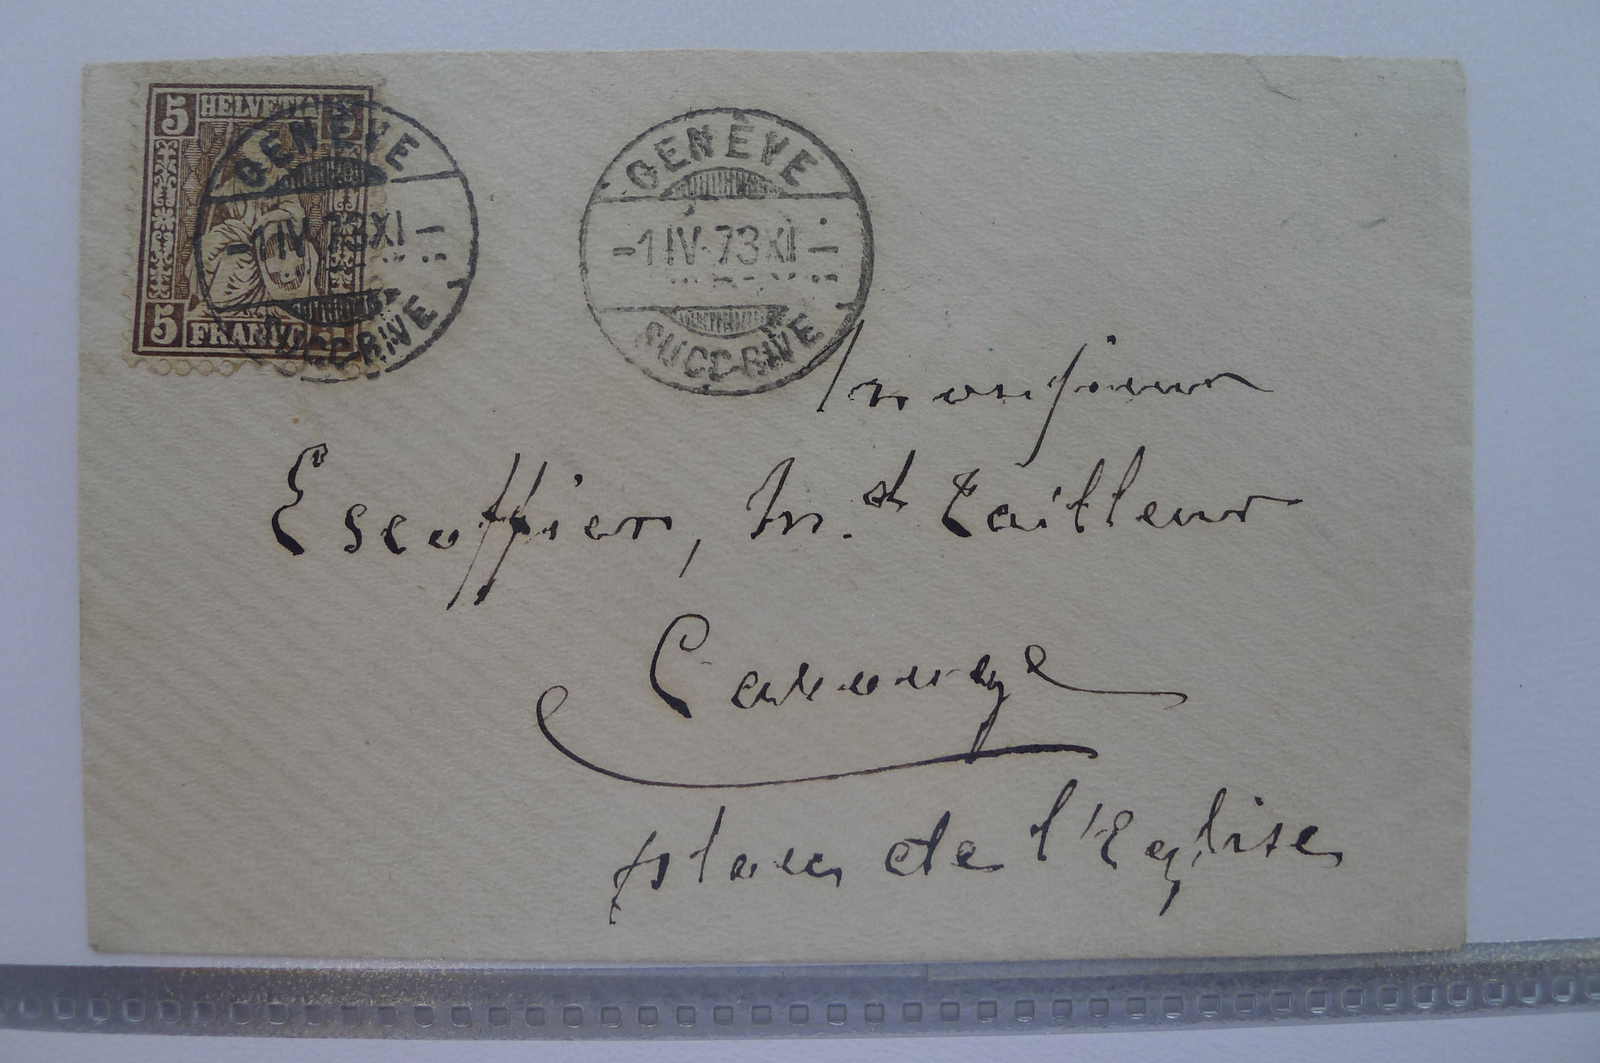 5 HELVETIA 5
5 FRANCO
GENÈVE
-1 IV. 73 XI-
SUCC-RIVE
GENÈVE
-1 IV. 73 XI-
SUCC-RIVE
Monsieur
Escoffier, M.d tailleur
Carouge
place de l'Eglise